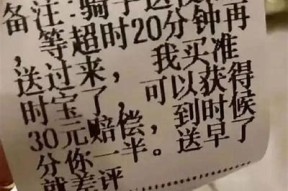 备注:骑手送
等超时20分钟再
送过来,我买准
时宝了,可以获得
30元赔偿,到时候
分你一半。送早了
就差评